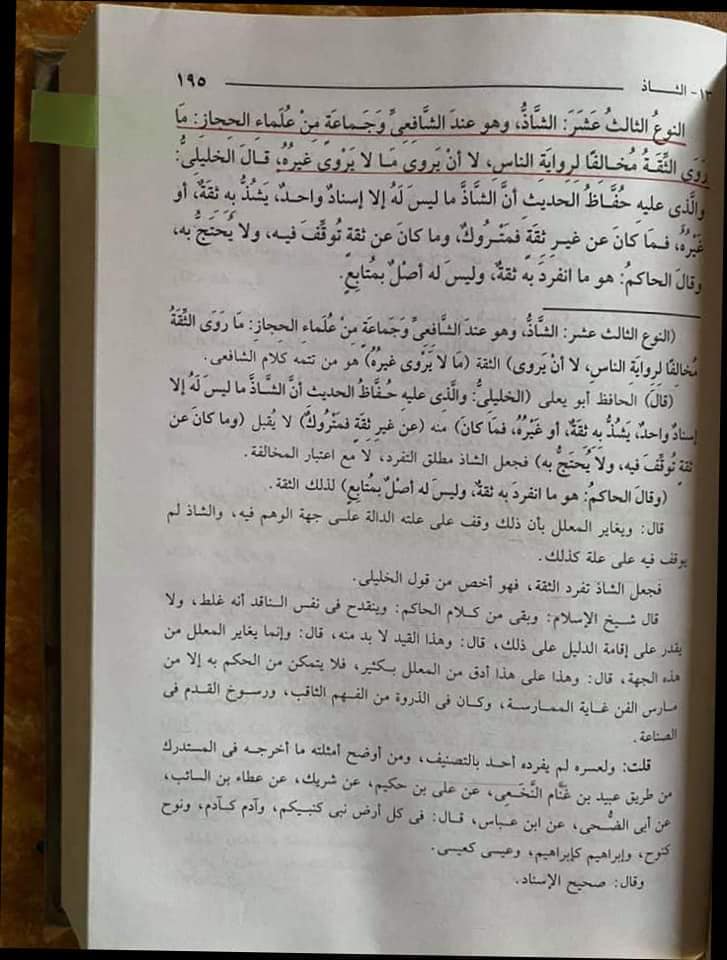 ١٣- الشـــاذ ١٩٥
النوعُ الثالثُ عَشَرَ: الشاذُّ، وهو عندَ الشَّافِعىِّ وَجَماعَةٍ مِنْ عُلَماءِ الحِجازِ: مَا
رَوَى الثِّقَةُ مُخالِفًا لِروايَةِ الناسِ، لا أنْ يَروى مَا لا يَرْوى غيرُهُ، قالَ الخليلىُّ:
والَّذى عليهِ حُفَّاظُ الحديثِ أنَّ الشاذَّ ما ليسَ لَهُ إلا إسنادٌ واحدٌ، يَشُذُّ بِه ثقةٌ، أو
غَيْرُهُ، فـمَا كانَ عن غيرِ ثِقَةٍ فمَتْروكٌ، وما كانَ عن ثقةٍ تُوقِّفَ فيـه، ولا يُحْتَجُّ به،
وقالَ الحاكمُ: هو ما انفردَ به ثقةٌ، وليسَ له أصْلٌ بمُتابِعٍ.
(النوع الثالث عشر: الشاذُّ، وهو عندَ الشَّافعىِّ وَجَماعةٍ مِنْ عُلَماءِ الحجازِ: مَا رَوَى الثِّقَةُ
مُخالِفًا لِروايَةِ الناسِ، لا أنْ يَروى) الثقة (مَا لا يَرْوى غيرُهُ) هو من تتمه كلام الشافعى.
(قالَ) الحافظ أبو يعلى (الخليلىُّ: والَّذى عليهِ حُفَّاظُ الحديث أنَّ الشاذَّ ما ليسَ لَهُ إلا
إسنادٌ واحدٌ، يَشُذُّ بِه ثقةٌ، أو غَيْرُهُ، فمَا كانَ) منه (عن غيرِ ثِقةٍ فمَتْروكٌ) لا يُقبل (وما كانَ عن
ثقةٍ تُوقِّفَ فيه، ولا يُحْتَجُّ به) فجعل الشاذ مطلق التفرد، لا مع اعتبار المخالفة.
(وقالَ الحاكمُ: هو ما انفردَ به ثقةٌ، وليسَ له أصْلٌ بمُتابِعٍ) لذلك الثقة.
قال: ويغاير المعلل بأن ذلك وقف على علته الدالة علـى جهة الوهم فيه، والشاذ لم
يوقف فيه على علة كذلك.
فجعل الشاذ تفرد الثقة، فهو أخص من قول الخليلى.
قال شـيخ الإسلام: وبقى من كلام الحاكم: وينقدح فى نفس الـناقد أنه غلط، ولا
يقدر على إقامة الدليل على ذلك، قال: وهذا القيد لا بد منه، قال: وإنما يغاير المعلل من
هذه الجهة، قال: وهذا على هذا أدق من المعلل بـكثير، فلا يتمكن من الحكم به إلا من
مارس الفن غاية الممـارسـة، وكـان فى الذروة من الفـهم الثاقب، ورسـوخ القدم فى
الصناعة.
قلت: ولعسره لم يفرده أحـد بالتصنيف، ومن أوضح أمثلته ما أخرجـه فى المستدرك
من طريق عبيد بن غَنَّام النَّخَعِى، عن على بن حكيم، عن شريك، عن عطاء بن السائب،
عن أبى الضُّحى، عن ابن عـباس، قـال: فى كل أرض نبى كنبيكم، وآدم كـآدم، ونوح
كنوح، وإبراهيم كإبراهيم، وعيسى كعيسى.
وقال: صحيح الإسناد.